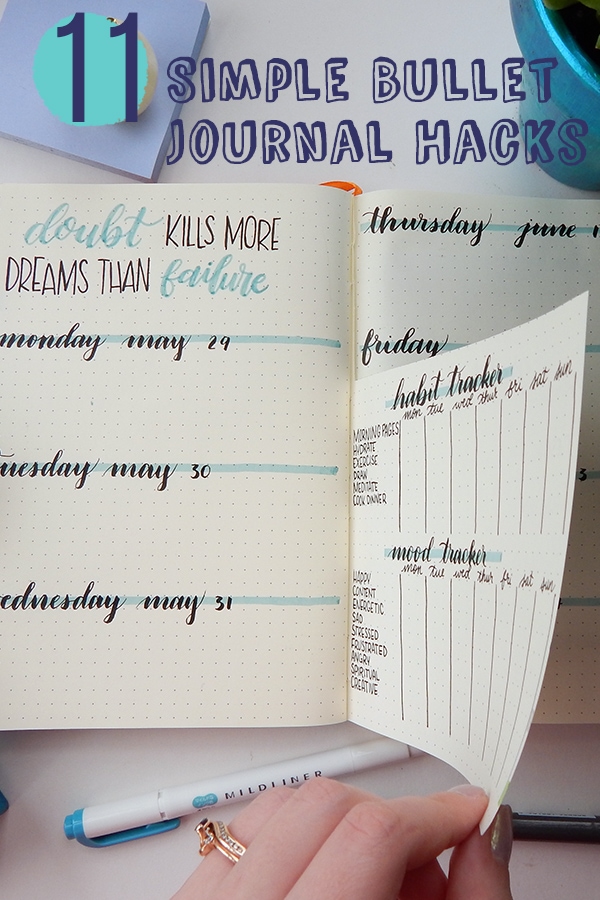 11 SIMPLE BULLET
JOURNAL HACKS
doubt KILLS MORE
DREAMS THAN failure
monday may 29
tuesday may 30
wednesday may 31
thursday june 1
friday
habit tracker
mon tue wed thur fri sat sun
MORNING PAGES
HYDRATE
EXERCISE
DRAW
MEDITATE
COOK DINNER
mood tracker
mon tue wed thur fri sat sun
HAPPY
CONTENT
ENERGETIC
SAD
STRESSED
FRUSTRATED
ANGRY
SPIRITUAL
CREATIVE
3
MILDLINER